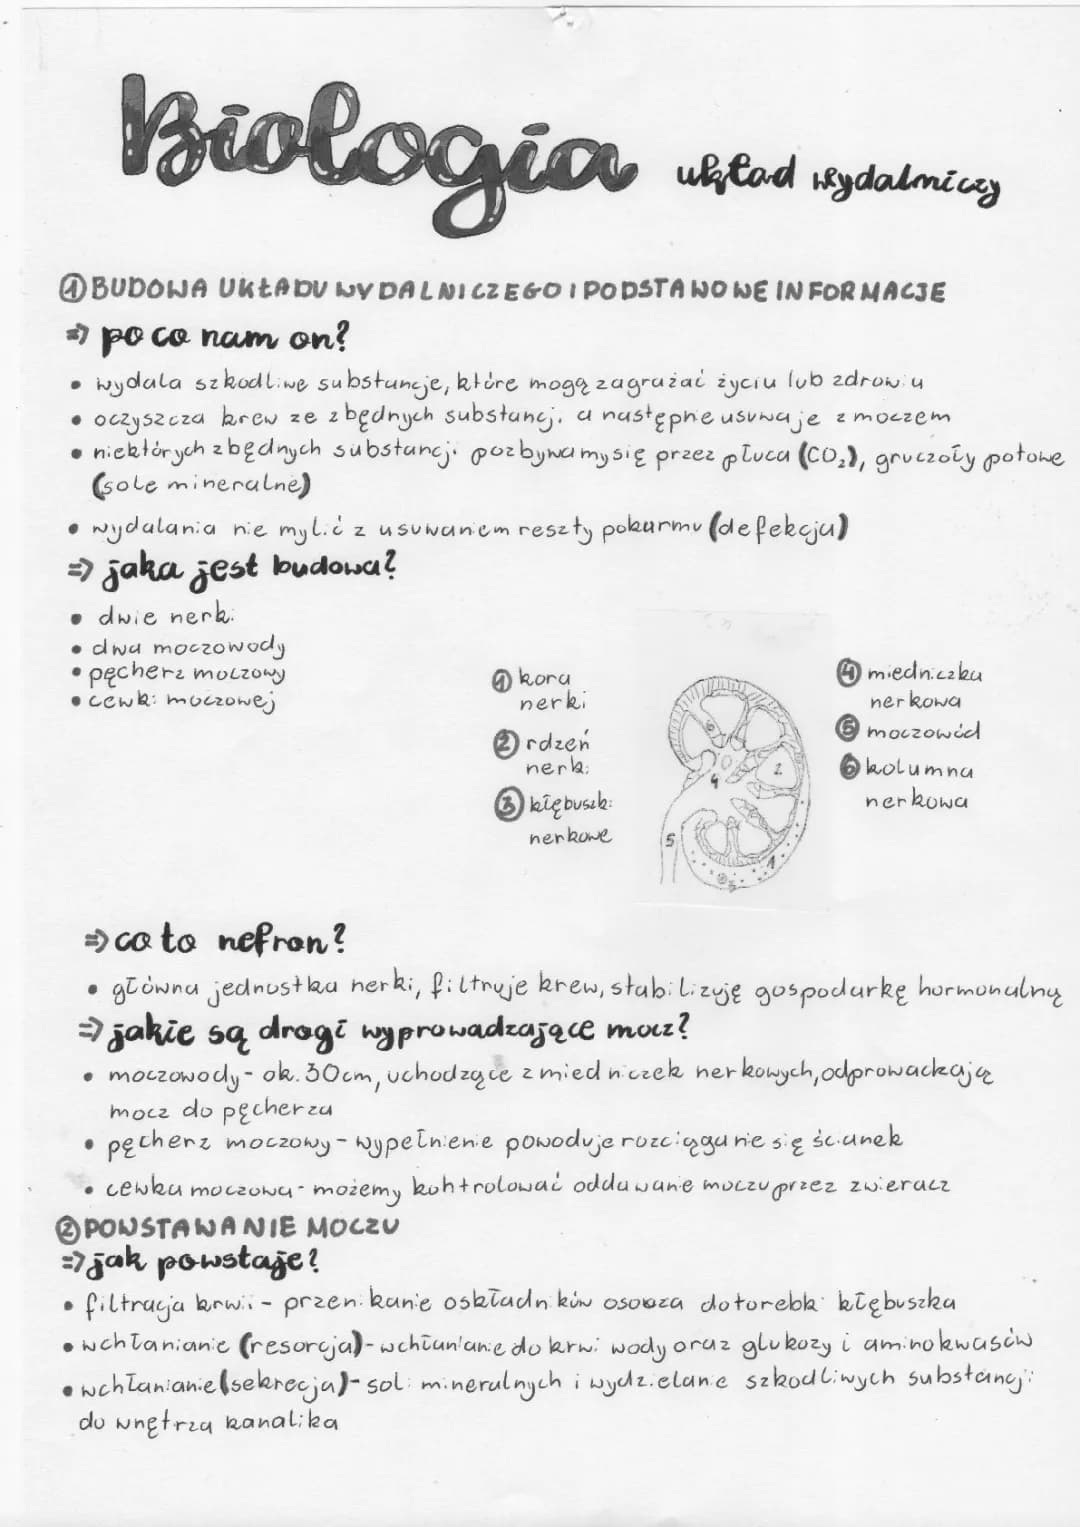 Biologia układ wydalniczy
① BUDOWA UKŁADU WYDALNICZEGO I PODSTAWOWE INFORMACJE
⇒ po co nam on?
• wydala szkodliwe substancje, które mogą zagrażać życiu lub zdrowiu
• oczyszcza krew ze zbędnych substancji, a następnie usuwa je z moczem
• niektórych zbędnych substancji pozbywamy się przez płuca (CO₂), gruczoły potowe
(sole mineralne)
• wydalania nie mylić z usuwaniem reszty pokarmu (defekcja)
⇒ jaka jest budowa?
• dwie nerki
• dwa moczowody
• pęcherz moczowy
• cewki moczowej
① kora
nerki
② rdzeń
nerki
③ kłębuszki
nerkowe
2
4
5
1
3
④ miedniczka
nerkowa
⑤ moczowód
⑥ kolumna
nerkowa
⇒ co to nefron?
• główna jednostka nerki, filtruje krew, stabilizuję gospodarkę hormonalną
⇒ jakie są drogi wyprowadzające mocz?
• moczowody - ok. 30cm, uchodzące z miedniczek nerkowych, odprowadzają
mocz do pęcherza
• pęcherz moczowy - wypełnienie powoduje rozciąganie się ścianek
• cewka moczowa - możemy kontrolować oddawanie moczu przez zwieracz
② POWSTAWANIE MOCZU
⇒ jak powstaje?
• filtracja krwii - przenikanie oskładników osocza do torebki kłębuszka
• wchłanianie (resorcja) - wchłanianie do krwi wody oraz glukozy i aminokwasów
• wchłanianie (sekrecja) - soli mineralnych i wydzielanie szkodliwych substancji
do wnętrza kanalika